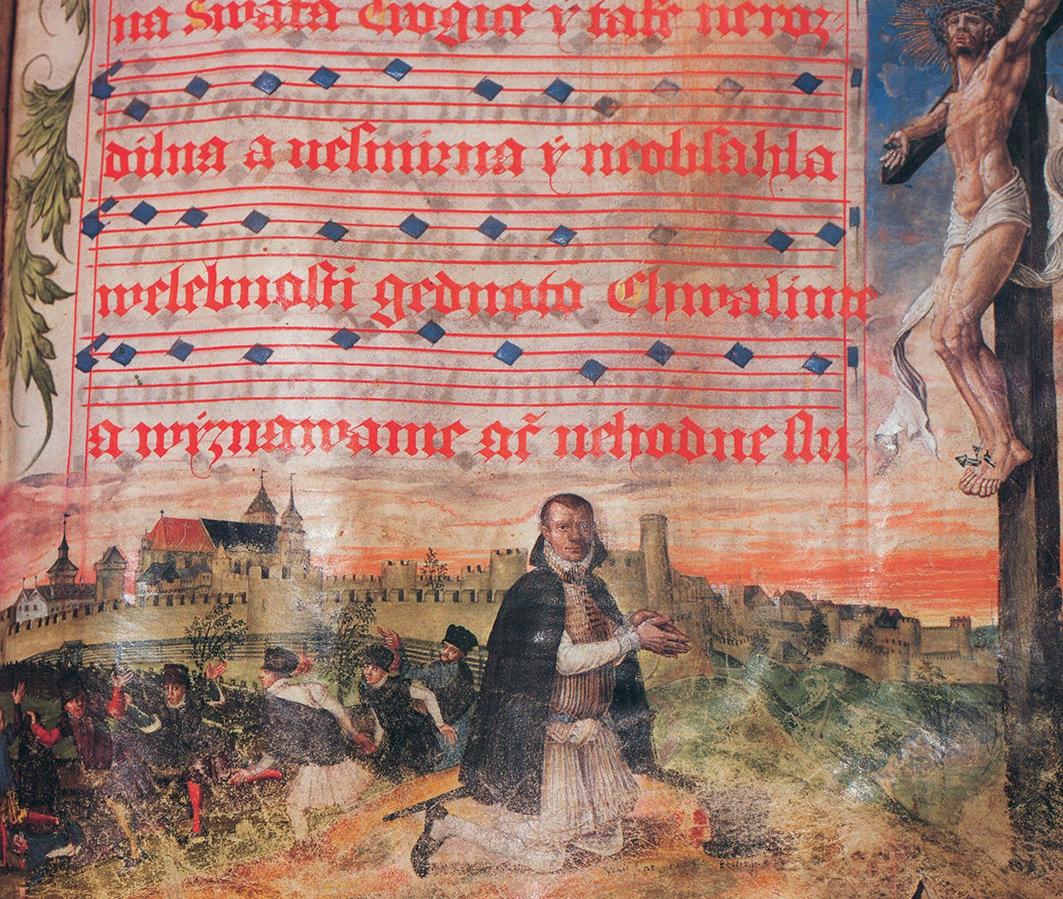 na Swata Trogice y take neroz-
dilna a nesmirna ÿ neobsahla
welebnosti gednoto Chwalime
a wýznawame ač nehodne slu-